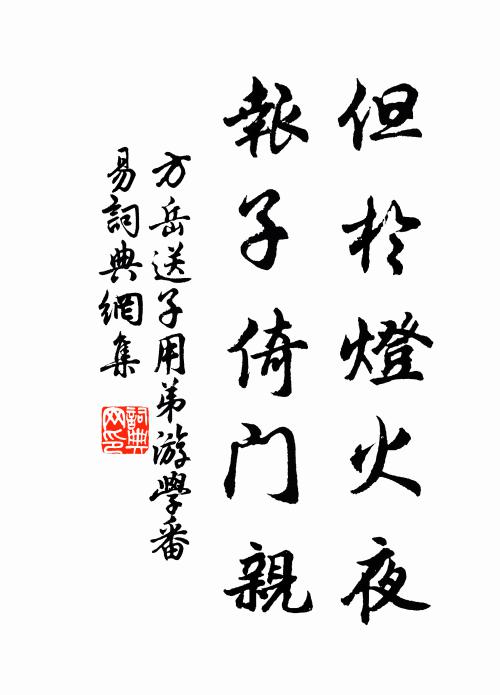 但於燈火夜
報子倚門親
方岳送子用弟游學番
易詞典網集
詞典网印